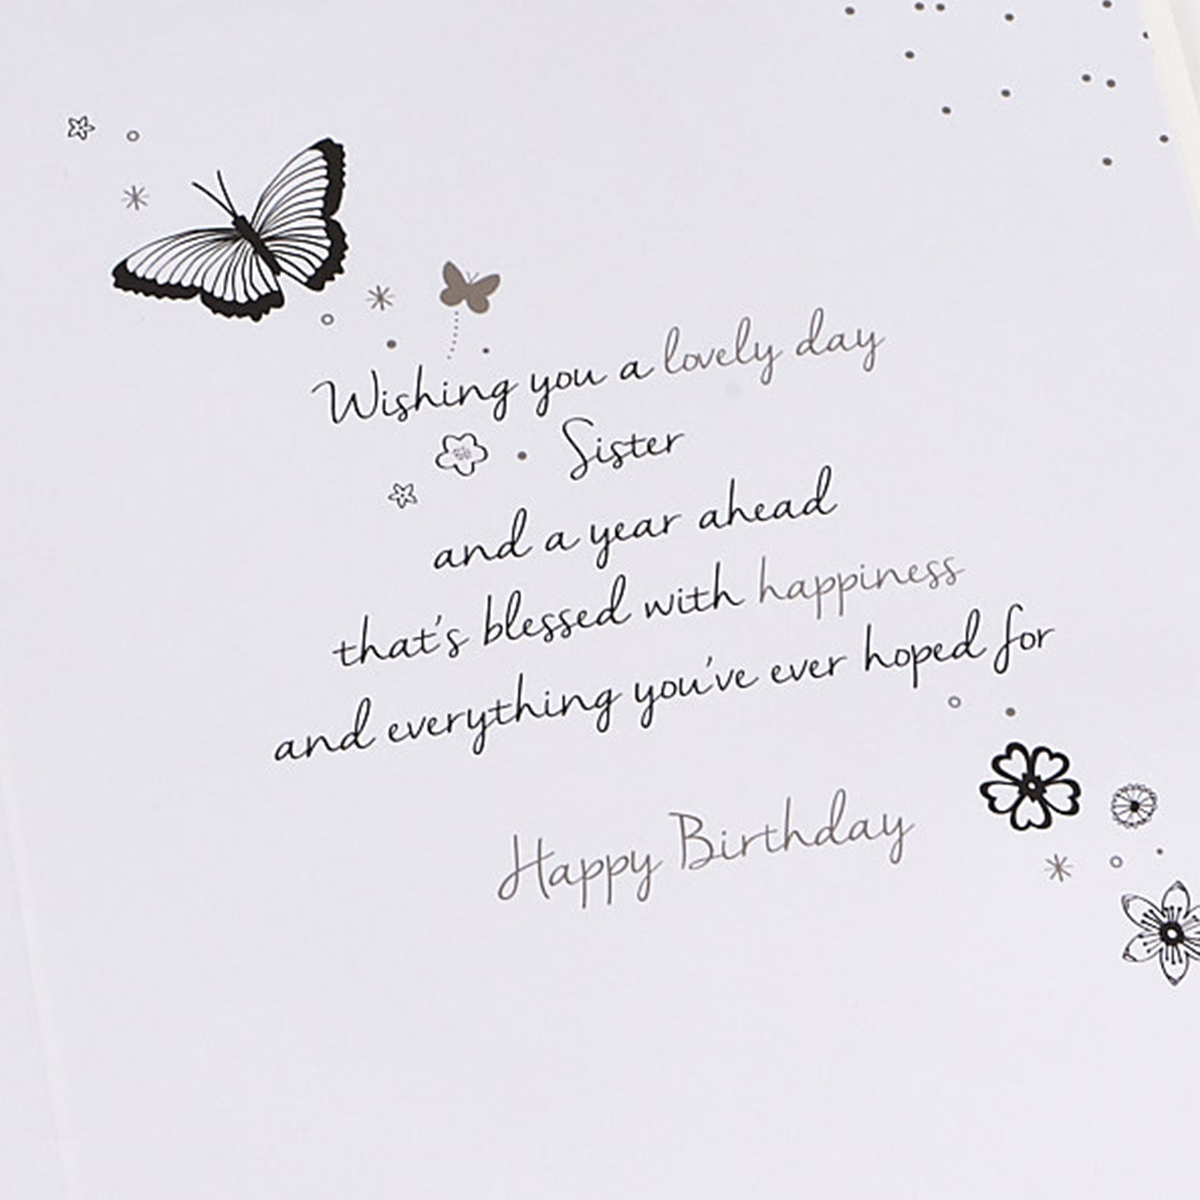 Wishing you a lovely day
Sister
and a year ahead
that's blessed with happiness
and everything you've ever hoped for
Happy Birthday